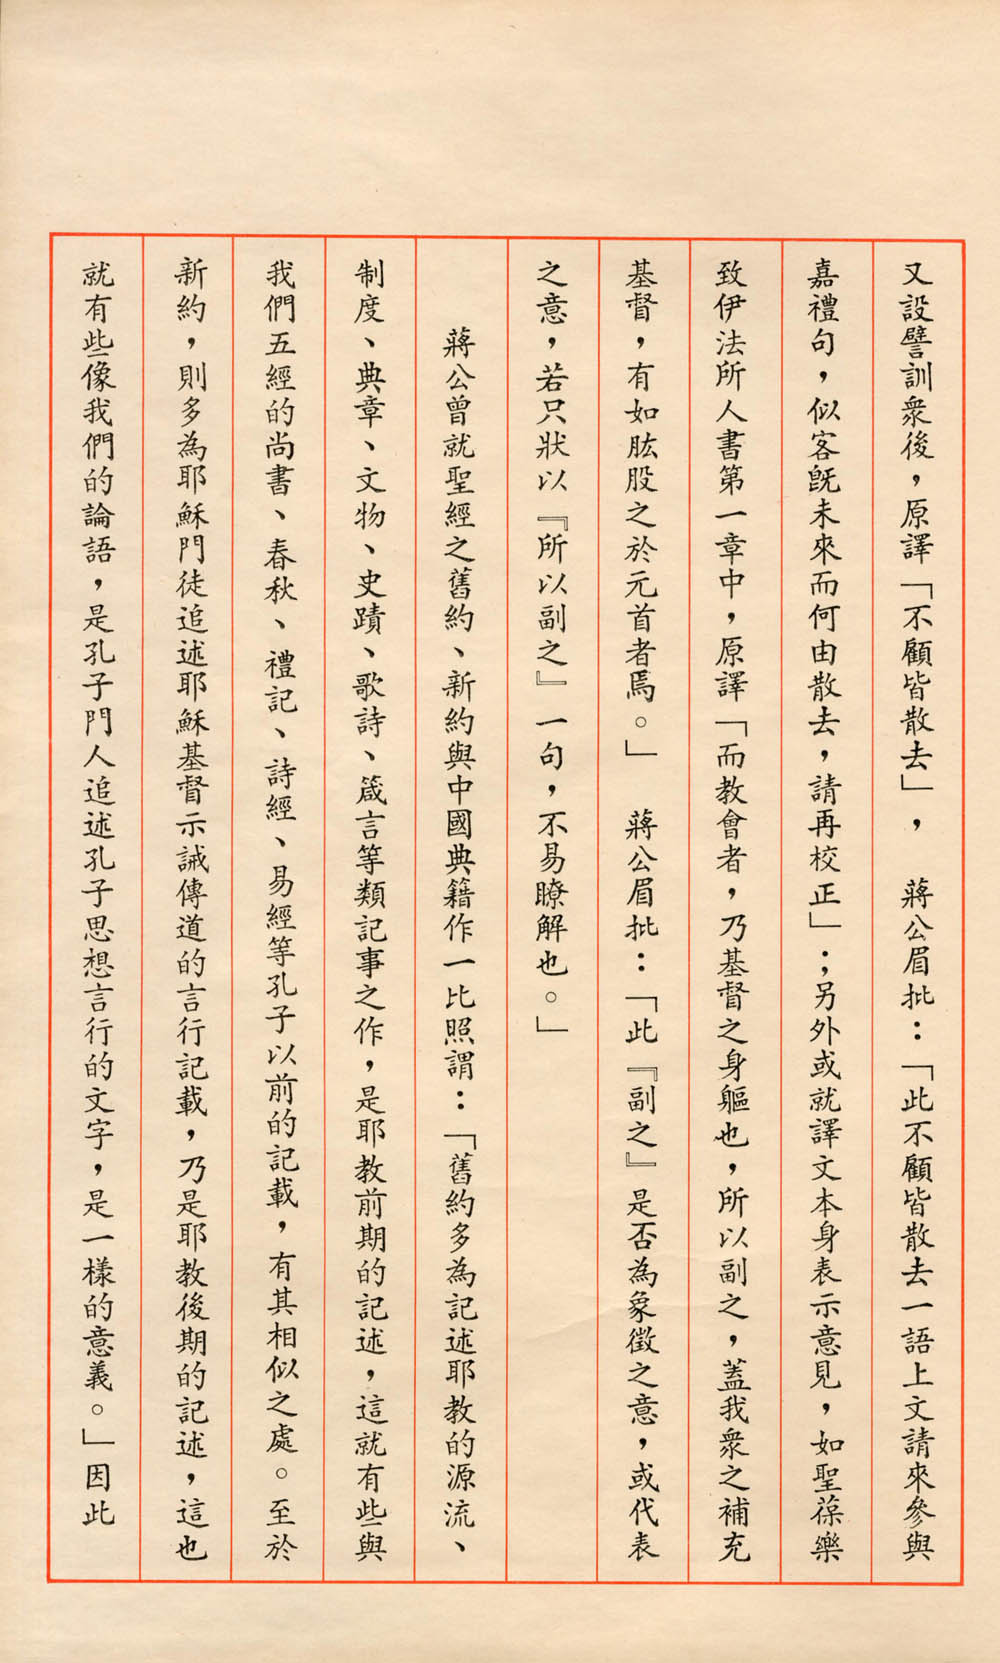 又設譬訓衆後，原譯「不顧皆散去」，　蔣公眉批：「此不顧皆散去一語上文請來參與
嘉禮句，似客旣未來而何由散去，請再校正」；另外或就譯文本身表示意見，如聖葆樂
致伊法所人書第一章中，原譯「而教會者，乃基督之身軀也，所以副之，蓋我衆之補充
基督，有如肱股之於元首者焉。」　蔣公眉批：「此『副之』是否為象徵之意，或代表
之意，若只狀以『所以副之』一句，不易瞭解也。」
　　蔣公曾就聖經之舊約、新約與中國典籍作一比照謂：「舊約多為記述耶教的源流、
制度、典章、文物、史蹟、歌詩、箴言等類記事之作，是耶教前期的記述，這就有些與
我們五經的尚書、春秋、禮記、詩經、易經等孔子以前的記載，有其相似之處。至於
新約，則多為耶穌門徒追述耶穌基督示誡傳道的言行記載，乃是耶教後期的記述，這也
就有些像我們的論語，是孔子門人追述孔子思想言行的文字，是一樣的意義。」因此